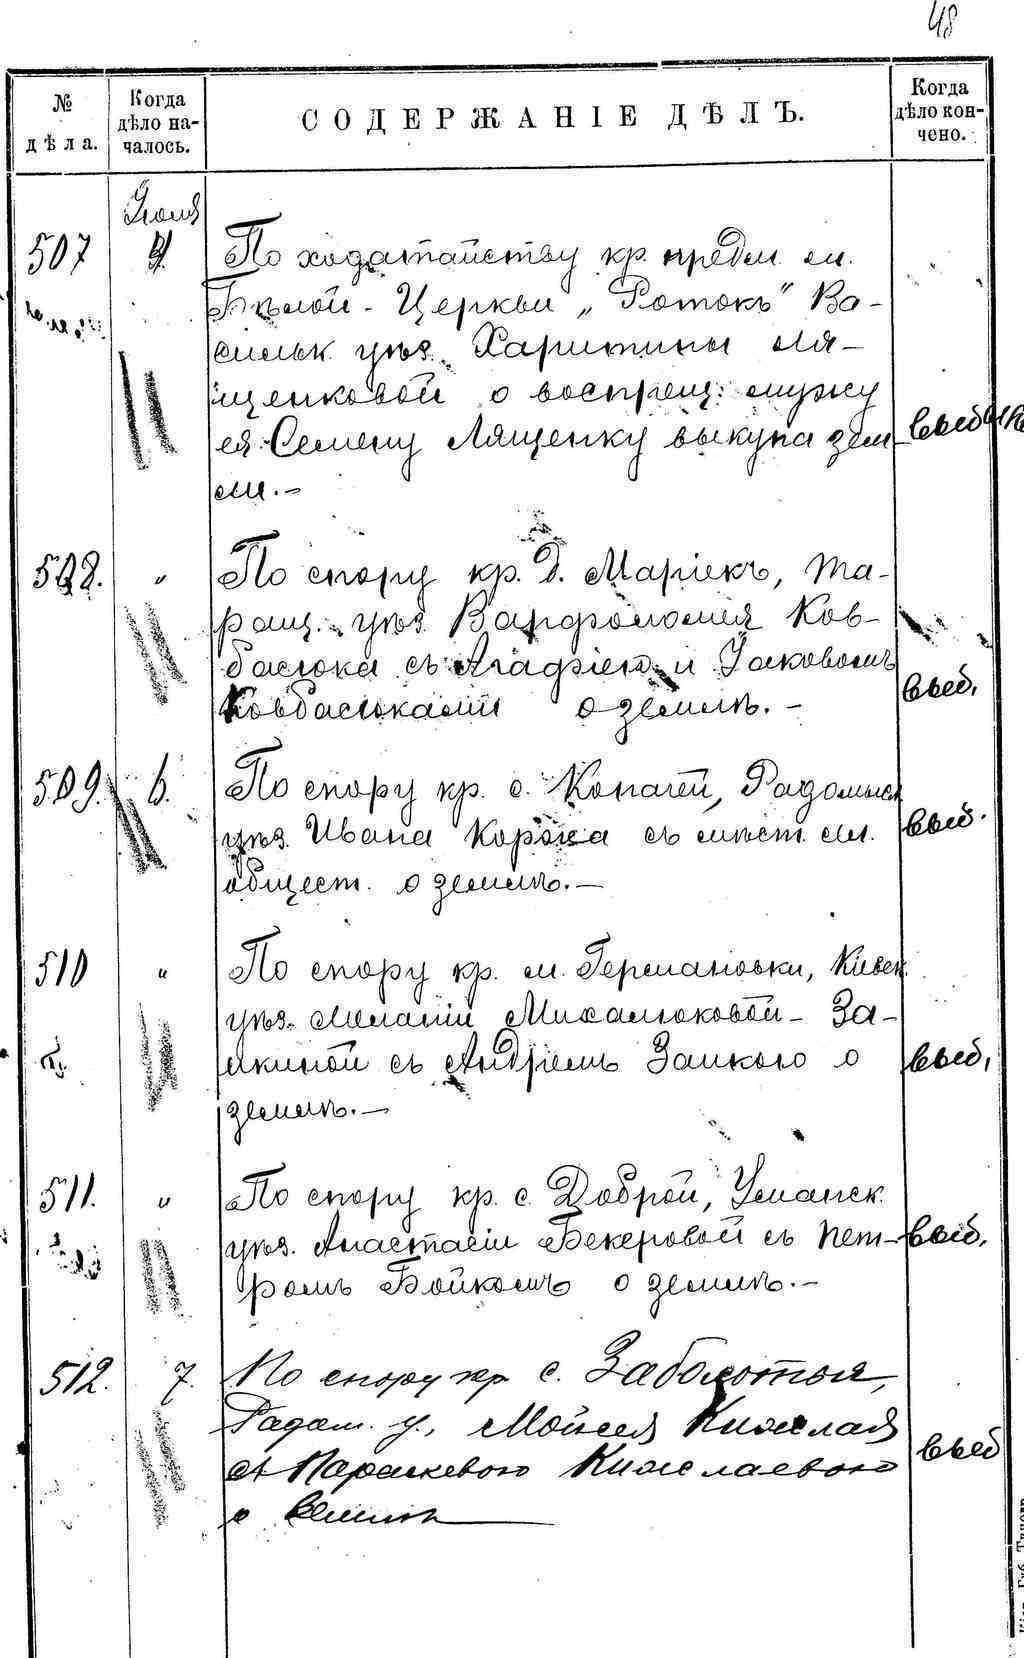 48
№ дѣла.
Когда дѣло началось.
СОДЕРЖАНІЕ ДѢЛЪ.
Когда дѣло кончено.
Іюля
507 4.
По ходатайству кр. предм. м.
Бѣлой-Церкви „Ротокъ“ Ва-
сильк. уѣз. Харитины Ля-
щенковой о воспрещ. мужу
ея Семену Лященку выкупа зем-
ли.-
выб
508. "
По спору кр. д. Маріекъ, Та-
ращ. уѣз. Варфоломея Ков-
басюка съ Агафіею и Яковомъ
Ковбасюками о землѣ.-
выб.
509. 6.
По спору кр. с. Копачей, Радомысл
уѣз. Ивана Корока съ мѣст. см.
общест. о землѣ.-
выб.
510 "
По спору кр. м. Германовки, Кіевск
уѣз. Меланіи Михалюковой-За-
икиной съ Андреемъ Заикою о
землѣ.-
выб.
511. "
По спору кр. с. Доброй, Уманск.
уѣз. Анастасіи Бекеровой съ Пет-
ромъ Бойкомъ о землѣ.-
выб.
512. 7.
По спору кр с. Заболотья,
Радом. у., Мойсея Кижлая
съ Параскевою Кижлаевою
о землѣ
выб